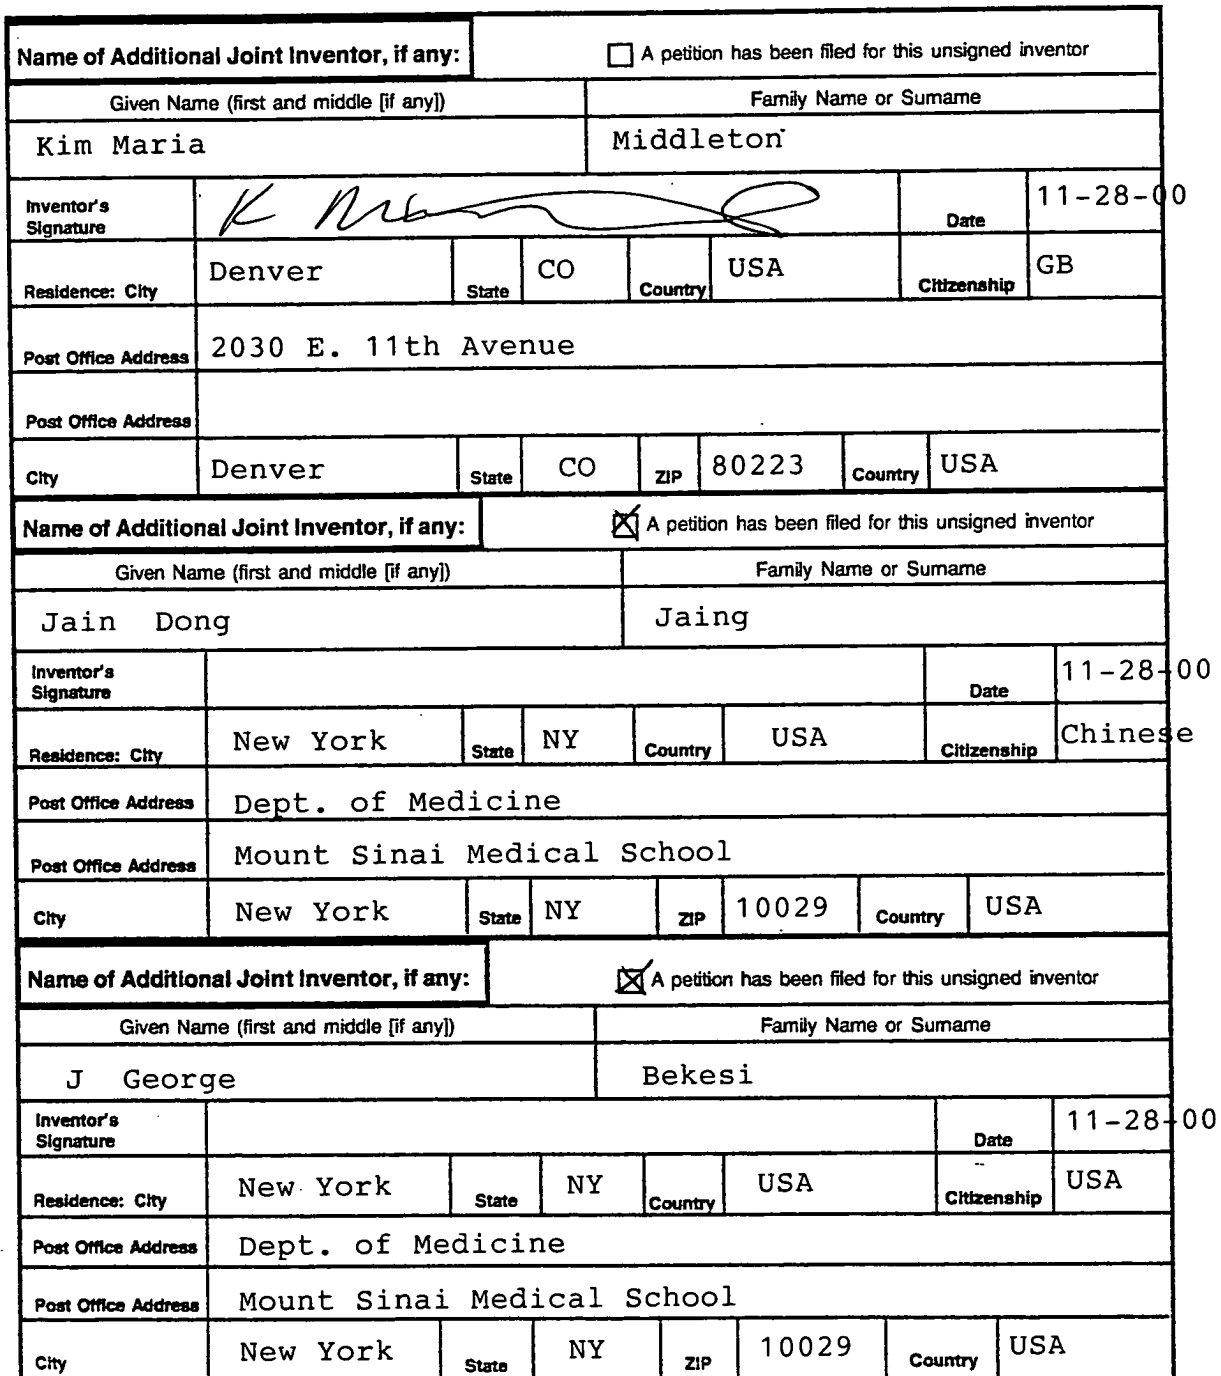 Name of Additional Joint Inventor, if any: A petition has been filed for this unsigned inventor
Given Name (first and middle [if any]) Family Name or Surname
Kim Maria Middleton
Inventor's Signature Date 11-28-00
Residence: City Denver State CO Country USA Citizenship GB
Post Office Address 2030 E. 11th Avenue
Post Office Address
City Denver State CO ZIP 80223 Country USA
Name of Additional Joint Inventor, if any: A petition has been filed for this unsigned inventor
Given Name (first and middle [if any]) Family Name or Surname
Jain Dong Jaing
Inventor's Signature Date 11-28-00
Residence: City New York State NY Country USA Citizenship Chinese
Post Office Address Dept. of Medicine
Post Office Address Mount Sinai Medical School
City New York State NY ZIP 10029 Country USA
Name of Additional Joint Inventor, if any: A petition has been filed for this unsigned inventor
Given Name (first and middle [if any]) Family Name or Surname
J George Bekesi
Inventor's Signature Date 11-28-00
Residence: City New York State NY Country USA Citizenship USA
Post Office Address Dept. of Medicine
Post Office Address Mount Sinai Medical School
City New York State NY ZIP 10029 Country USA